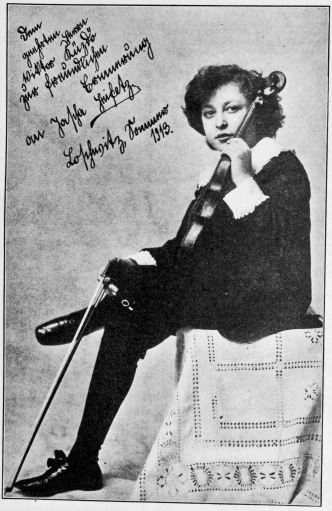 Dem
geehrten Herrn
Viktor
zur freundlichen
Erinnerung
an Jascha
Heifetz
Loschwitz Sommer
1913.